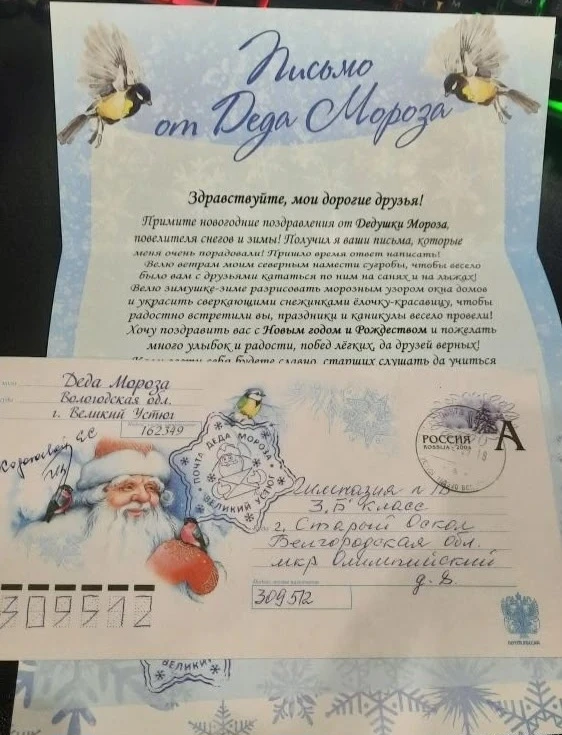 Письмо
от Деда Мороза
Здравствуйте, мои дорогие друзья!
Примите новогодние поздравления от Дедушки Мороза,
повелителя снегов и зимы! Получил я ваши письма, которые
меня очень порадовали! Пришло время ответ написать!
Велю ветрам моим северным намести сугробы, чтобы весело
было вам с друзьями кататься по ним на санях и на лыжах!
Велю зимушке-зиме разрисовать морозным узором окна домов
и украсить сверкающими снежинками ёлочку-красавицу, чтобы
радостно встретили вы, праздники и каникулы весело провели!
Хочу поздравить вас с Новым годом и Рождеством и пожелать
много улыбок и радости, побед лёгких, да друзей верных!
себя будете славно, старших слушать да учиться
Деда Мороза
Вологодская обл.
г. Великий Устюг
162349
ПОЧТА ДЕДА МОРОЗА
ВЕЛИКИЙ УСТЮГ
РОССИЯ
ROSSIJA
А
Гимназия n 18
3 "Б" класс
г. Старый Оскол
Белгородская обл.
мкр Олимпийский
309512
309512
ВЕЛИКИ